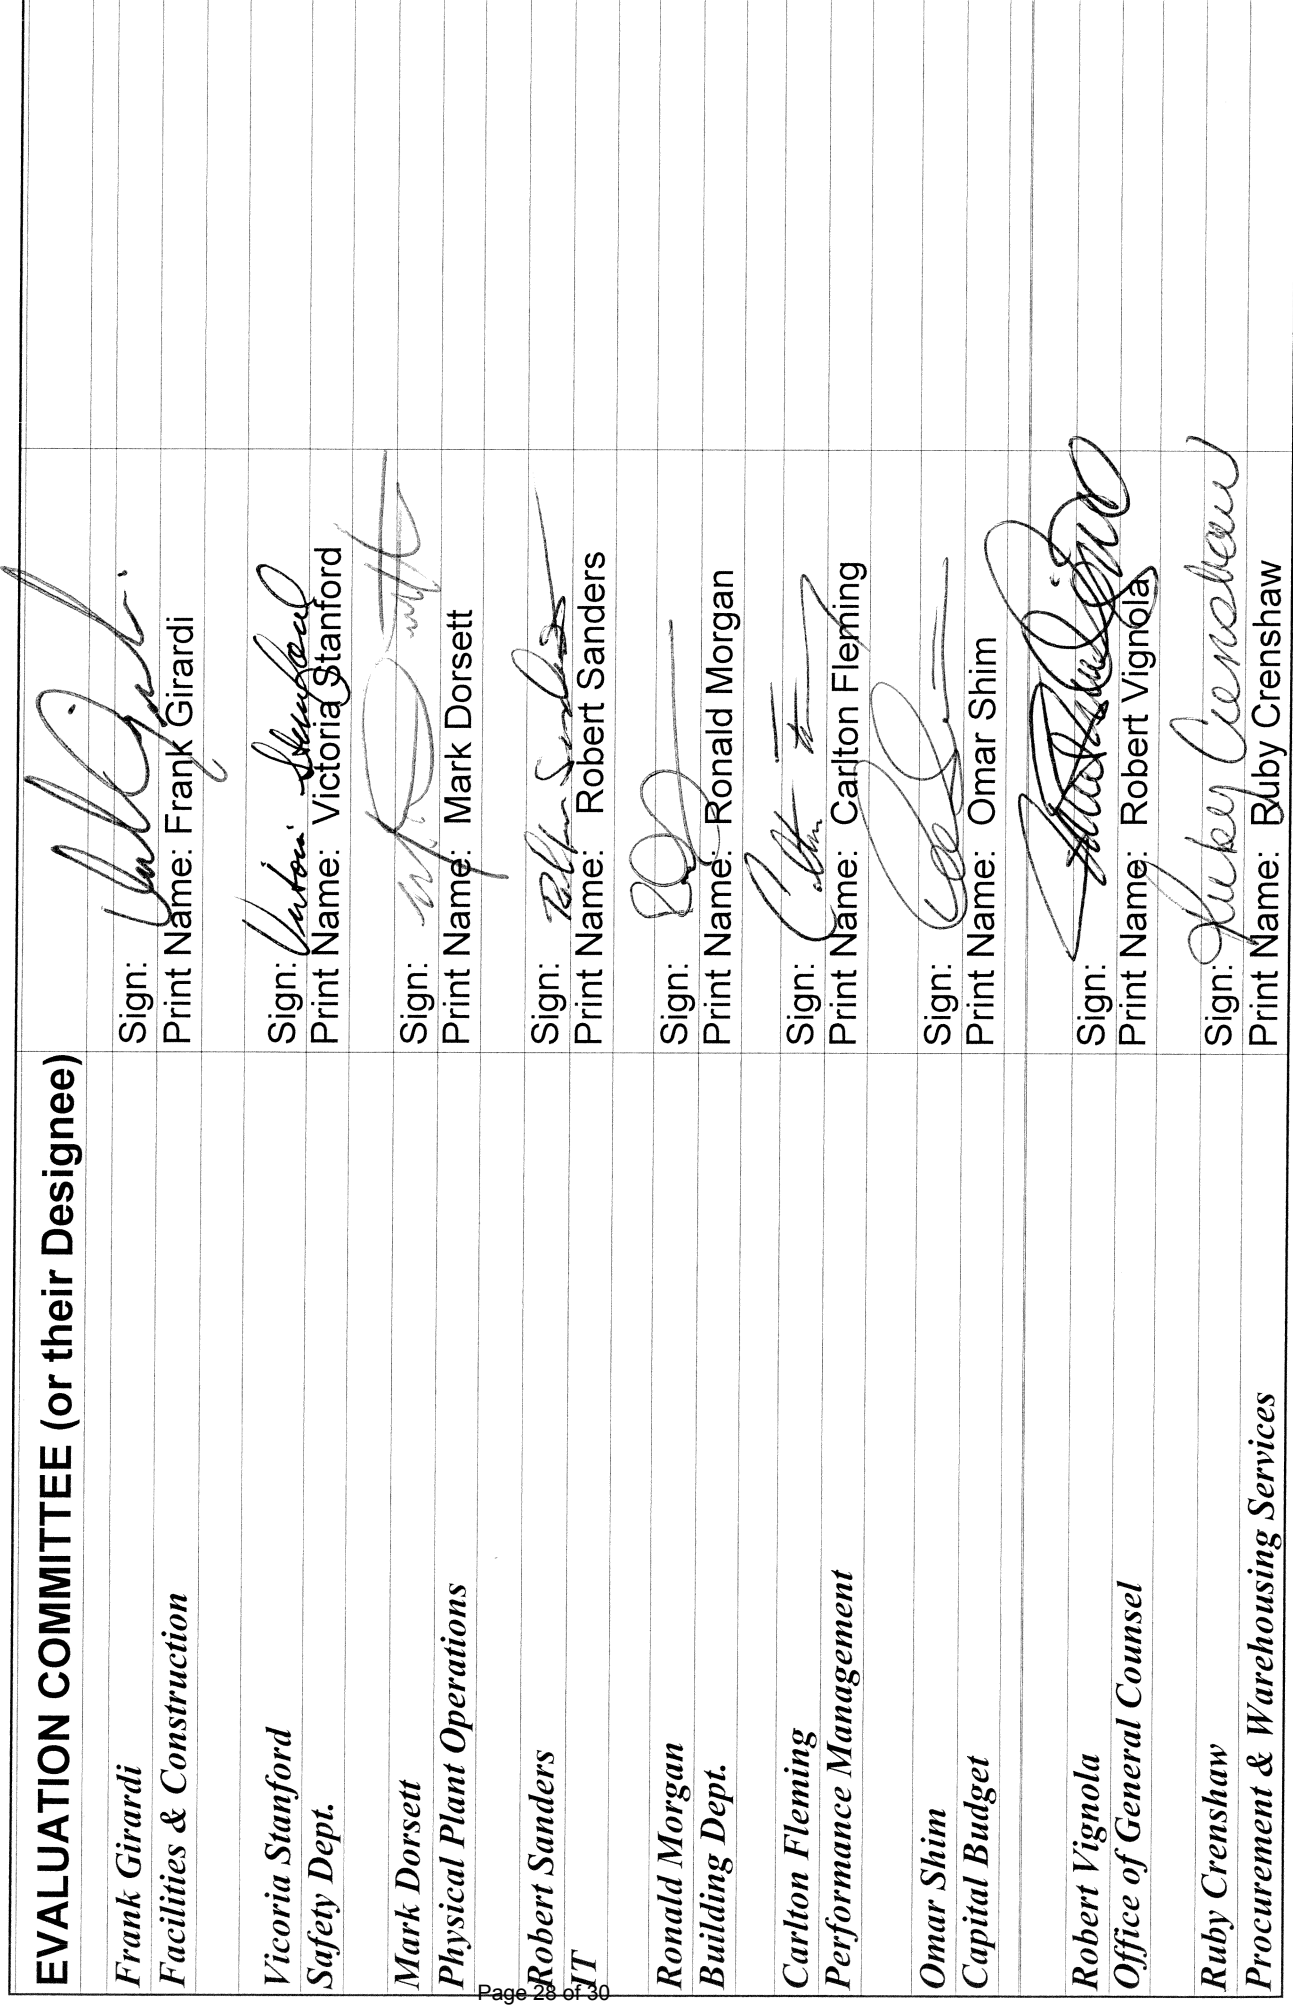 EVALUATION COMMITTEE (or their Designee)
Frank Girardi
Sign:
Facilities & Construction
Print Name: Frank Girardi
Vicoria Stanford
Sign: Victoria Stanford
Safety Dept.
Print Name: Victoria Stanford
Mark Dorsett
Sign:
Physical Plant Operations
Print Name: Mark Dorsett
Robert Sanders
Sign: Robert Sanders
IT
Print Name: Robert Sanders
Ronald Morgan
Sign:
Building Dept.
Print Name: Ronald Morgan
Carlton Fleming
Sign:
Performance Management
Print Name: Carlton Fleming
Omar Shim
Sign:
Capital Budget
Print Name: Omar Shim
Robert Vignola
Sign:
Office of General Counsel
Print Name: Robert Vignola
Ruby Crenshaw
Sign: Ruby Crenshaw
Procurement & Warehousing Services
Print Name: Ruby Crenshaw
Page 28 of 30